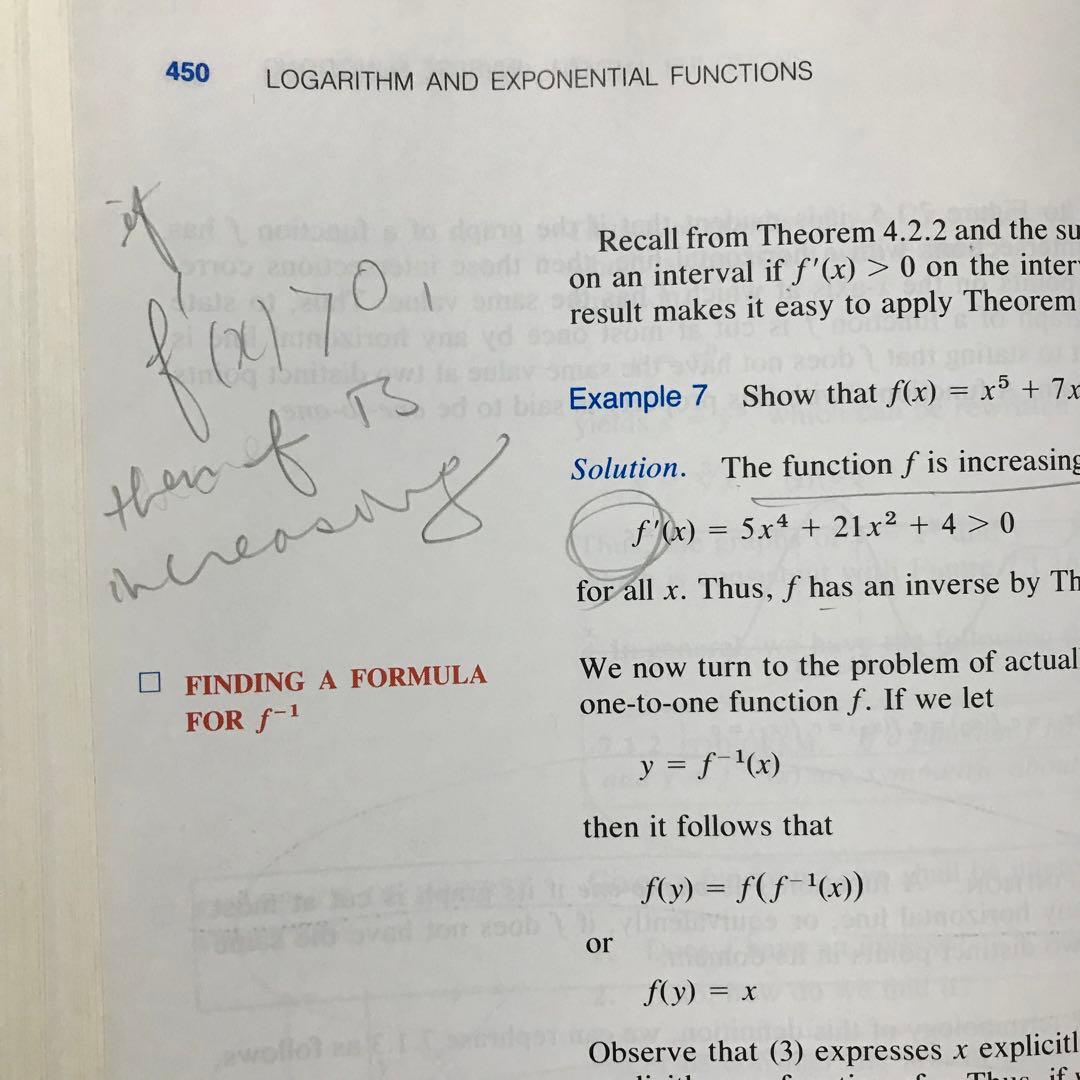 450 LOGARITHM AND EXPONENTIAL FUNCTIONS
if
f'(x) > 0,
then f is
increasing
Recall from Theorem 4.2.2 and the su
on an interval if f'(x) > 0 on the inter
result makes it easy to apply Theorem
Example 7 Show that f(x) = x⁵ + 7x
Solution. The function f is increasing
f'(x) = 5x⁴ + 21x² + 4 > 0
for all x. Thus, f has an inverse by Th
□ FINDING A FORMULA
FOR f⁻¹
We now turn to the problem of actual
one-to-one function f. If we let
y = f⁻¹(x)
then it follows that
f(y) = f(f⁻¹(x))
or
f(y) = x
Observe that (3) expresses x explicitl